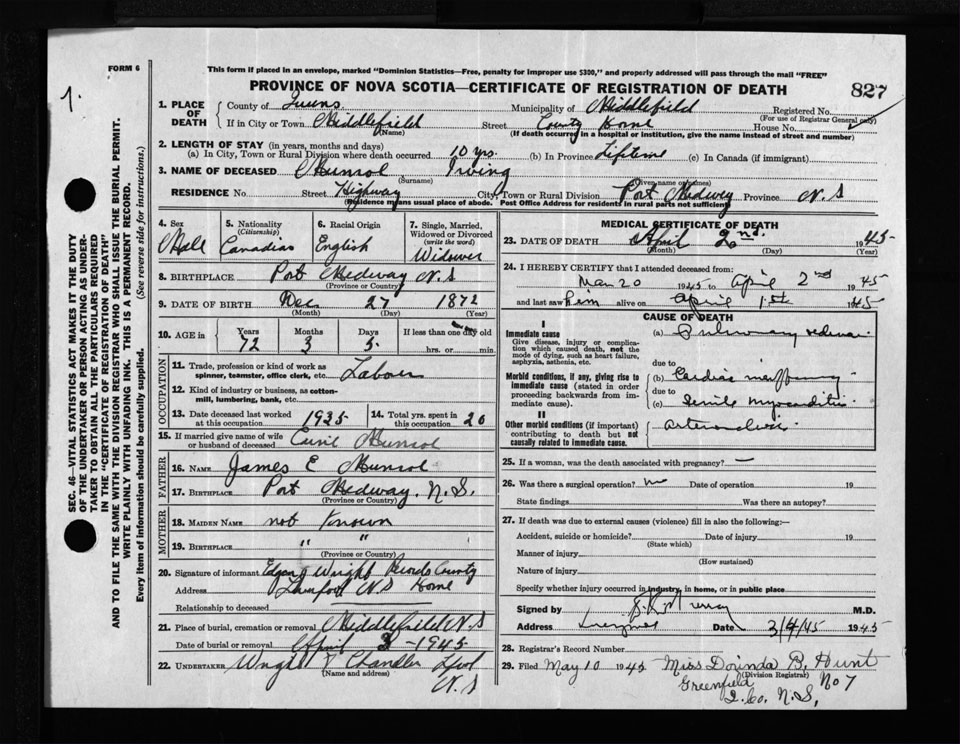 FORM 6
This form if placed in an envelope, marked "Dominion Statistics—Free, penalty for improper use $300," and properly addressed will pass through the mail "FREE"
PROVINCE OF NOVA SCOTIA—CERTIFICATE OF REGISTRATION OF DEATH
827
1.
SEC. 46—VITAL STATISTICS ACT MAKES IT THE DUTY
OF THE UNDERTAKER OR PERSON ACTING AS UNDER-
TAKER TO OBTAIN ALL THE PARTICULARS REQUIRED
IN THE "CERTIFICATE OF REGISTRATION OF DEATH"
AND TO FILE THE SAME WITH THE DIVISION REGISTRAR WHO SHALL ISSUE THE BURIAL PERMIT.
WRITE PLAINLY WITH UNFADING INK. THIS IS A PERMANENT RECORD.
Every item of information should be carefully supplied. (See reverse side for instructions.)
1. PLACE OF DEATH
County of Queens Municipality of Middlefield Registered No.
(For use of Registrar General only)
If in City or Town Middlefield Street County Home House No.
(Name) (If death occurred in a hospital or institution, give the name instead of street and number)
2. LENGTH OF STAY (in years, months and days)
(a) In City, Town or Rural Division where death occurred 10 yrs. (b) In Province Lifetime (c) In Canada (if immigrant)
3. NAME OF DECEASED Irving
(Surname) (Given name or names)
RESIDENCE No. Street Highway City, Town or Rural Division Port Medway Province N.S
(Residence means usual place of abode. Post Office Address for residents in rural parts not sufficient)
4. Sex Male
5. Nationality (Citizenship) Canadian
6. Racial Origin English
7. Single, Married, Widowed or Divorced (write the word) Widower
8. BIRTHPLACE Port Medway N.S
(Province or Country)
9. DATE OF BIRTH Dec 27 1872
(Month) (Day) (Year)
10. AGE in Years 72 Months 3 Days 5 If less than one day old
hrs. or min.
OCCUPATION
11. Trade, profession or kind of work as spinner, teamster, office clerk, etc. Labour
12. Kind of industry or business, as cotton-mill, lumbering, bank, etc.
13. Date deceased last worked at this occupation 1935
14. Total yrs. spent in 20
15. If married give name of wife or husband of deceased
FATHER
16. NAME James E
17. BIRTHPLACE Port Medway, N.S.
(Province or Country)
MOTHER
18. MAIDEN NAME not Known
19. BIRTHPLACE " "
(Province or Country)
20. Signature of informant Wright County
Address Liverpool N.S Home
Relationship to deceased
21. Place of burial, cremation or removal Middlefield N.S
Date of burial or removal April 3 - 1945
22. UNDERTAKER Wright & Chandler Lpl
(Name and address) N.S
MEDICAL CERTIFICATE OF DEATH
23. DATE OF DEATH April 2nd. 1945
(Month) (Day) (Year)
24. I HEREBY CERTIFY that I attended deceased from:
Mar 20 1945 to April 2nd 1945
and last saw him alive on April 1st 1945
CAUSE OF DEATH
I
Immediate cause
Give disease, injury or complication which caused death, not the mode of dying, such as heart failure, asphyxia, asthenia, etc.
(a) Pulmonary edema.
due to
Morbid conditions, if any, giving rise to immediate cause (stated in order proceeding backwards from immediate cause).
(b) Cardiac
due to
(c) Senile myocarditis
II
Other morbid conditions (if important) contributing to death but not causally related to immediate cause.
25. If a woman, was the death associated with pregnancy? —
26. Was there a surgical operation? no Date of operation 19
State findings Was there an autopsy?
27. If death was due to external causes (violence) fill in also the following:—
Accident, suicide or homicide? Date of injury 19
(State which)
Manner of injury
(How sustained)
Nature of injury
Specify whether injury occurred in industry, in home, or in public place
Signed by M.D.
Address Date 3/4/45 1945
28. Registrar's Record Number
29. Filed May 10 1945 Miss Dorinda B. Hunt
(Division Registrar)
Greenfield No 7
Q. Co. N.S.